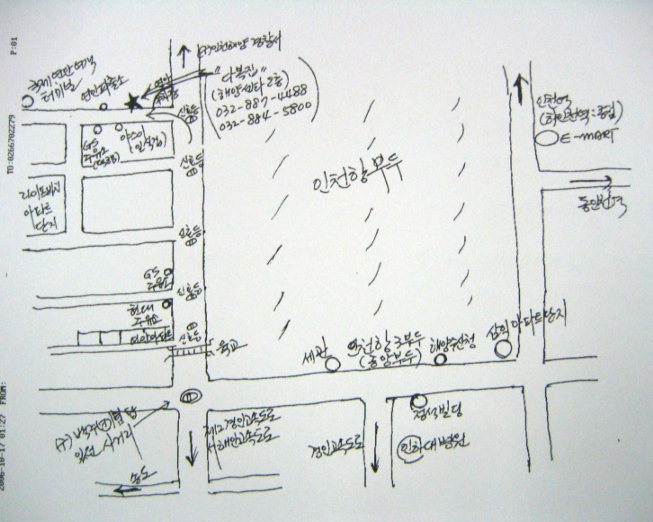 P:01
TO:0266702279
2006-10-17 01:27 FROM:
국제연안여객
터미널
연안파출소
(구)인천해양 경찰서
"다복집"
(해양센타 2층)
032-887-4488
032-884-5800
신호등
GS
주유소
신호등
라이프비취
아파트
단지
신호등
GS
주유소
신호등
현대
주유소
연안아파트
신호등
육교
인천항 부두
인천역
(하인천역:종점)
E-MART
동인천역
세관
인천항 3부두
(중앙부두)
해양수산청
삼익아파트단지
정석빌딩
인하대병원
경인고속도로
제2경인고속도로
서해안고속도로
사거리
송도